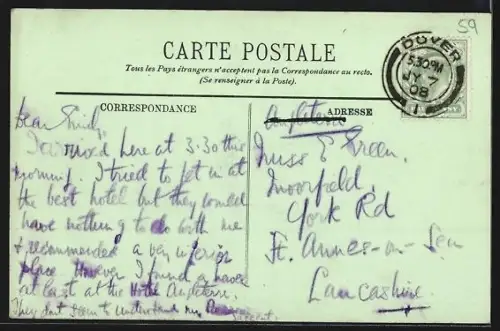 59
CARTE POSTALE
Tous les Pays étrangers n'acceptent pas la Correspondance au recto.
(Se renseigner à la Poste).
DOVER
5.30 PM
JY 7
08
1
CORRESPONDANCE
ADRESSE
Dear
I arrived here at 3-30 this
morning. I tried to get in at
the best hotel but they would
have nothing to do with me
& recommended a very inferior
place However I found a haven
at last at the Hotel Angleterre.
They don't seem to understand my
accent.
Angleterre
Miss E Green.
Moorfield.
York Rd
St. Annes-on-Sea
Lancashire.